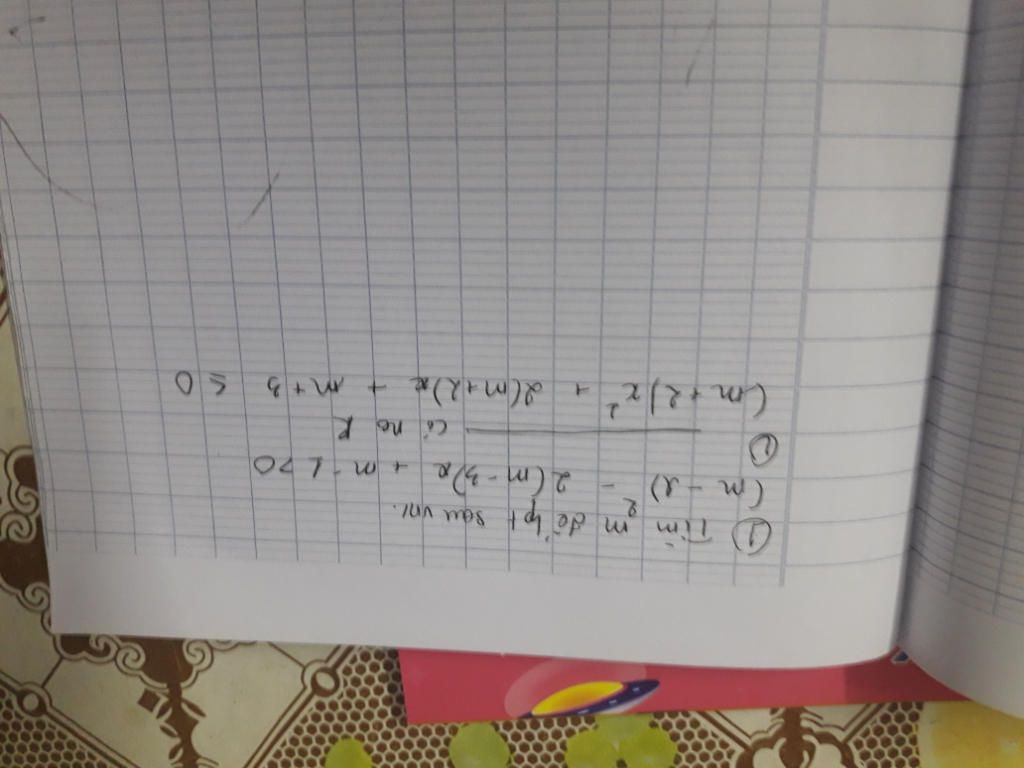 ① Tìm m để bpt sau vn.
(m - 2)² - 2(m-3)x + m - 1 > 0
② ——— có no R
(m+2)x² + 2(m+2)x + m+3 ≤ 0